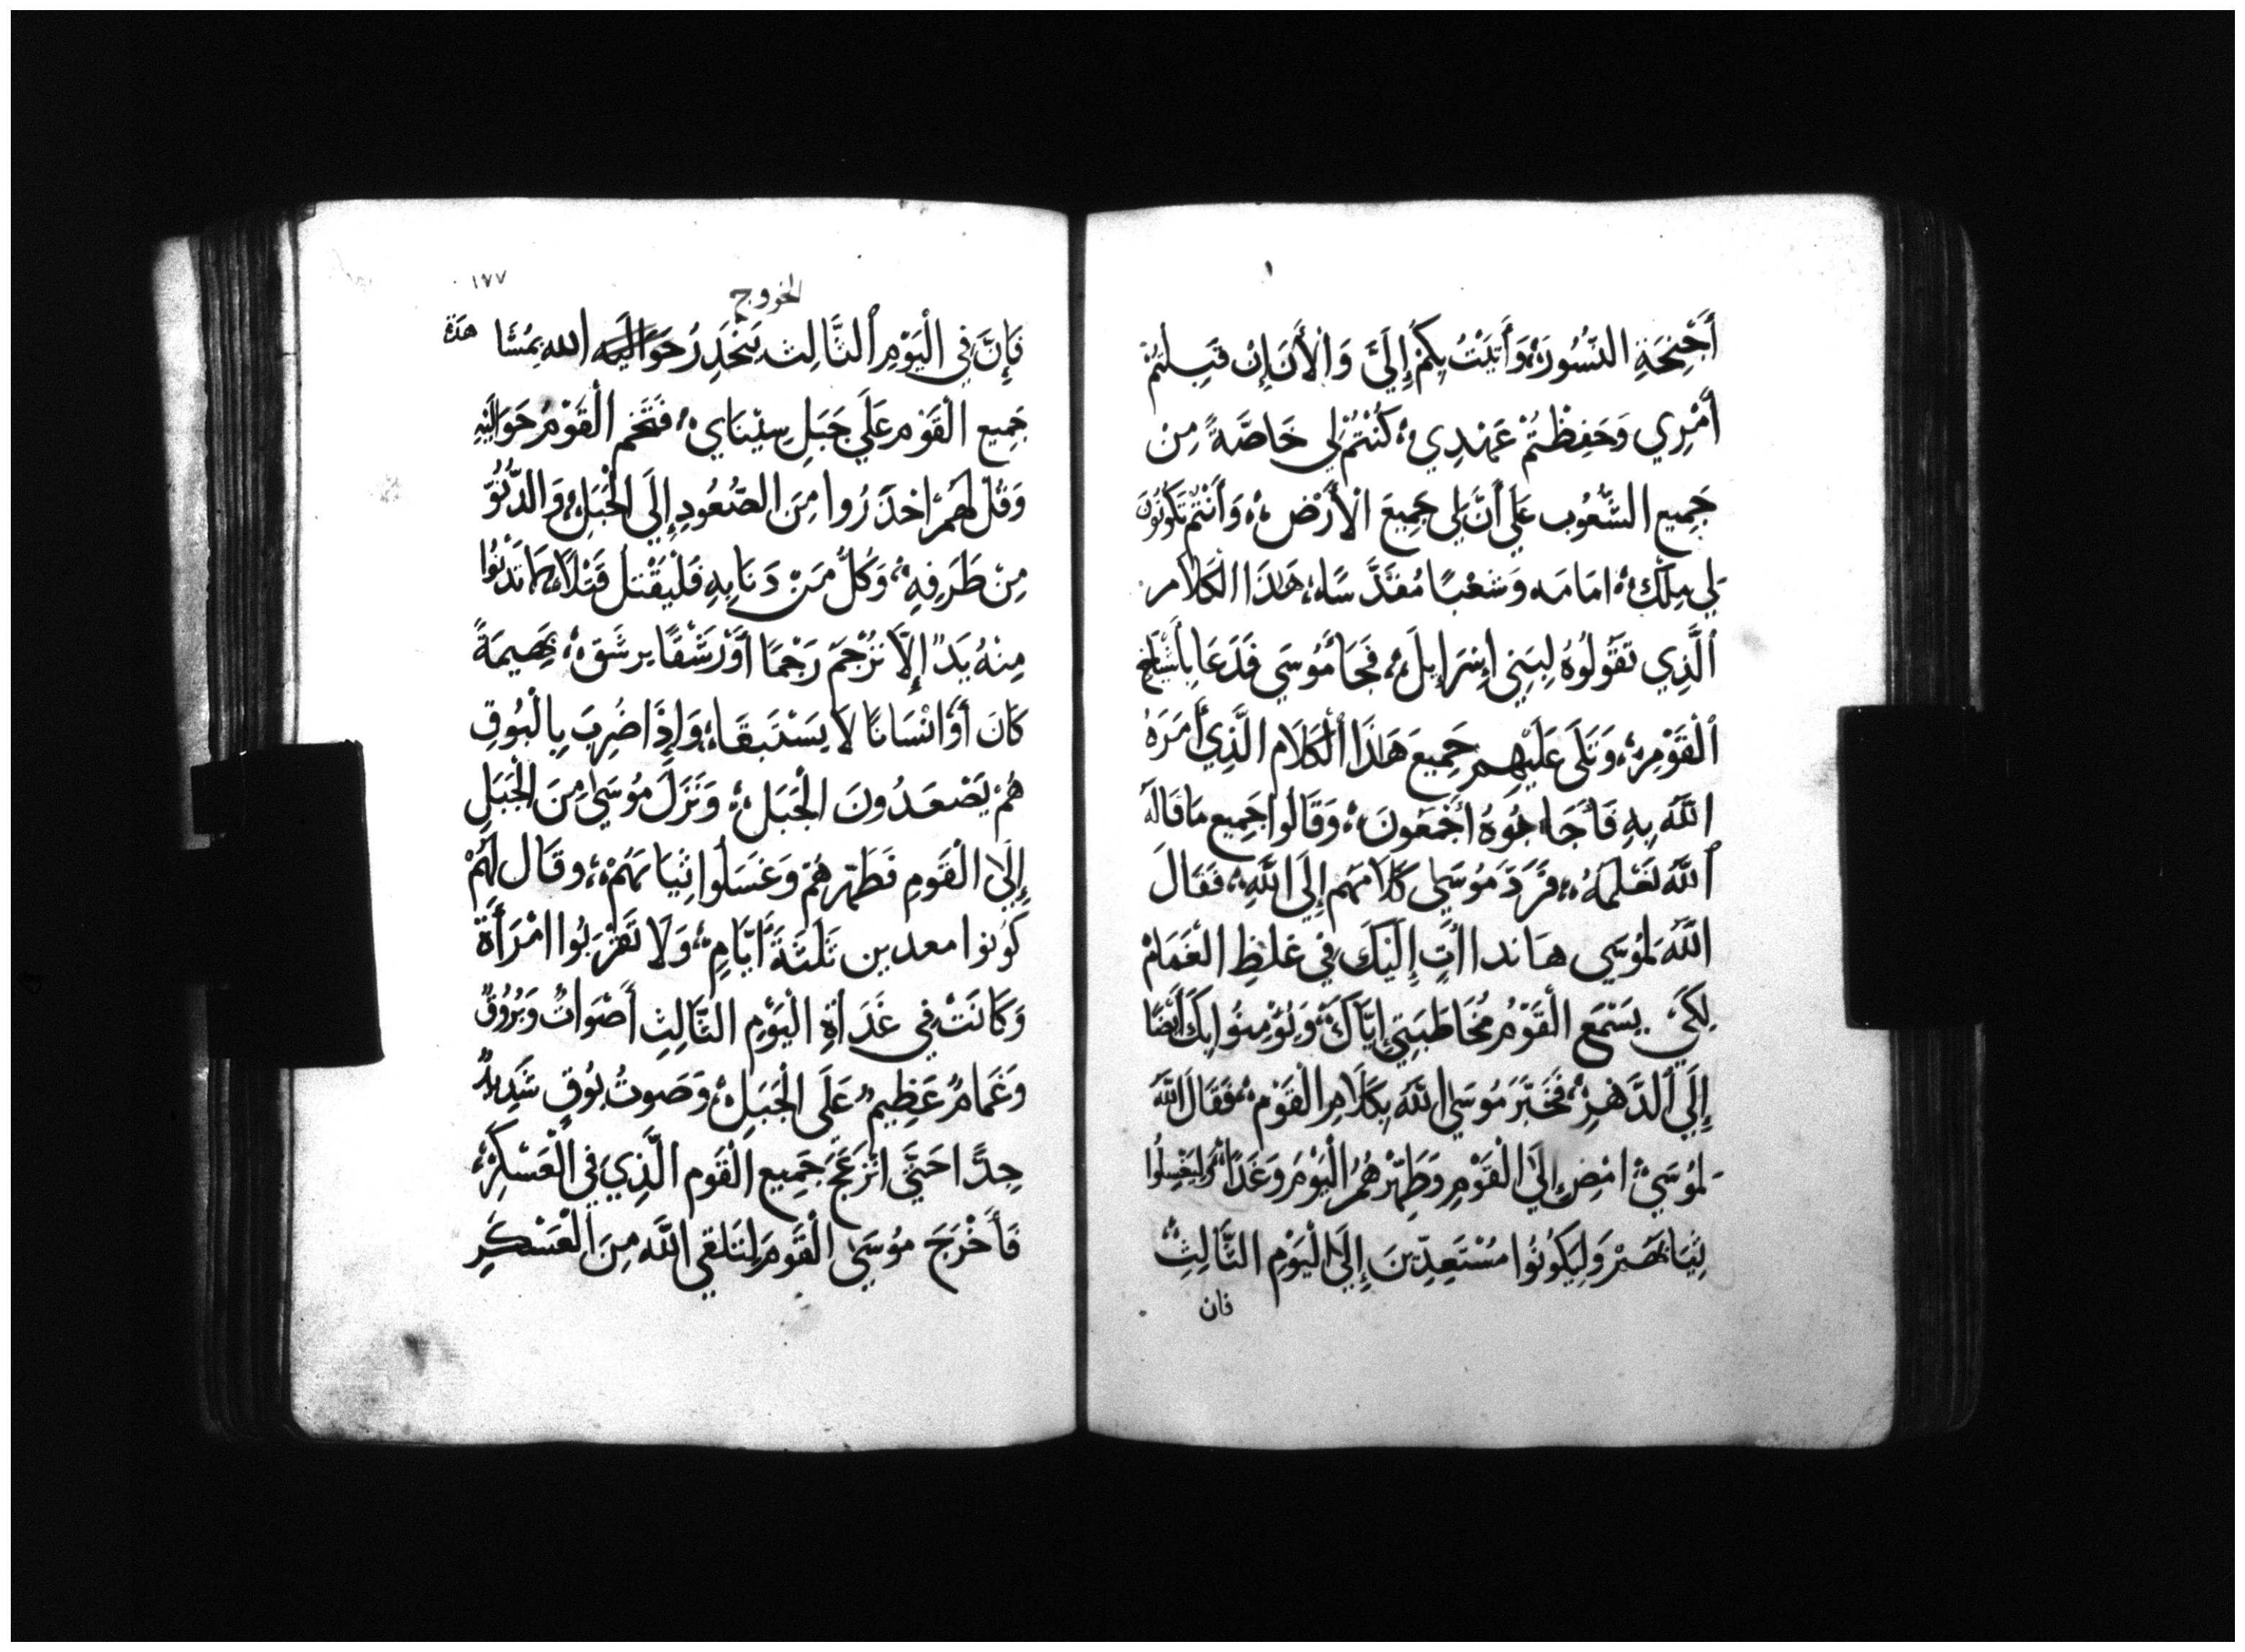 أَجْنِحَةِ النُّسُورَةِ، وَأَتَيْتُ بِكُمْ إِلَيَّ وَالْأَنَ إِنْ قَبِلْتُمْ
أَمْرِي وَحَفِظْتُمْ عَهْدِي، كُنْتُمْ لِي خَاصَّةً مِنْ
جَمِيعِ الشُّعُوبِ عَلَى أَنَّ لِي جَمِيعَ الْأَرْضِ، وَأَنْتُمْ تَكُونُونَ
لِي مِلْكُ، امَامَه وَشَعْبًا مُقَدَّسًا، هَذَا الكَلَامُ
الَّذِي تَقُولُوهُ لِبَنِي إِسْرَايِلَ، فَجَأَ مُوسَى فَدَعَا بِأَشْيَاخِ
الْقَوْمِ، وَتَلَى عَلَيْهِمِ جَمِيعَ هَذَا الْكَلَامِ الَّذِي أَمَرَهُ
اللَّهُ بِهِ فَأَجَابُوهُ أَجْمَعُونَ، وَقَالُوا جَمِيع مَا قَالَهُ
اللَّهُ نَعْلَمُهُ، فَرَدَّ مُوسَى كَلَامَهُم إِلَى اللَّهِ، فَقَالَ
اللَّهُ لِمُوسَى هَانَدا اتٍ إِلَيْكَ فِي غِلَظِ الْغَمَامْ
لِكَيْ يَسْتَمِعَ الْقَوْمُ مُخَاطَبَتِي إِيَّاكَ، وَيُؤْمِنُوا بِكَ أَيْضًا
إِلَى الدَّهْرِ، فَخَبَّرَ مُوسَى اللَّهَ بِكَلَامِ الْقَوْمِ، فَقَالَ اللَّهُ
لِمُوسَى، امْضِ إِلَى الْقَوْمِ وَطَهِّرْهُمُ الْيَوْمَ وَغَدًا، وَلْيَغْسِلُوا
ثِيَابَهُمْ وَلِيَكُونُوا مُسْتَعِدِّينَ إِلَى الْيَوْمِ الثَّالِثِ،
فان
١٧٧
الخروج
فَإِنَّ فِي الْيَوْمِ الثَّالِثِ يَنْحَدِرُ اللَّه بِمُشَا هَدَة
جَمِيعِ الْقَوْمِ عَلَى جَبَلِ سِيْنَايِ، فَتَخُّم الْقَوْمُ حَوَالَيْهِ
وَقُلْ لَهُمُ احْذَرُوا مِنَ الصُّعُودِ إِلَى الْجَبَلِ، وَالدُّنُوِّ
مِنْ طَرَفِهِ، وَكُلُّ مَنْ دَنَا بِهِ فَلْيُقْتَلْ قَتْلاً، لَا تَدْنُوا
مِنْهُ يَدٌ إِلَّا تُرْجَمْ رَجْمًا أَوْ رَشْقًا يرشَقُ، بَهِيمَةً
كَانَ أَوْ انْسَانًا لَا يَسْتَبِقَا، وَإِذَا ضُرِبَ بِالْبُوقِ
هُمْ يَصْعَدُونَ الْجَبَلَ، وَنَزَلَ مُوسَى مِنَ الْجَبَلِ
إِلَى الْقَوْمِ فَطَهَّرهُمْ وَغَسَلُوا ثِيَابَهُمْ، وقَالَ لَهُمْ
كُونُوا معدين ثَلَثَةَ أَيَّامٍ، وَلَا تَقْرَبُوا امْرَأَةً
وَكَانَتْ فِي غَدَاةِ الْيَوْمِ الثَّالِثِ أَصْوَاتٌ وَبُرُوقٌ
وَغَمَامٌ عَظِيمٌ عَلَى الْجَبَلِ، وَصَوتُ بُوقٍ شَدِيدٌ
جِدًّا حَتَّى انْزَعَجَ جَمِيعِ الْقَومِ الَّذِي فِي الْعَسْكَرِ،
فَأَخْرَجَ مُوسَى الْقَومَ لِتَلَقِي اللَّه مِنَ الْعَسْكَرِ